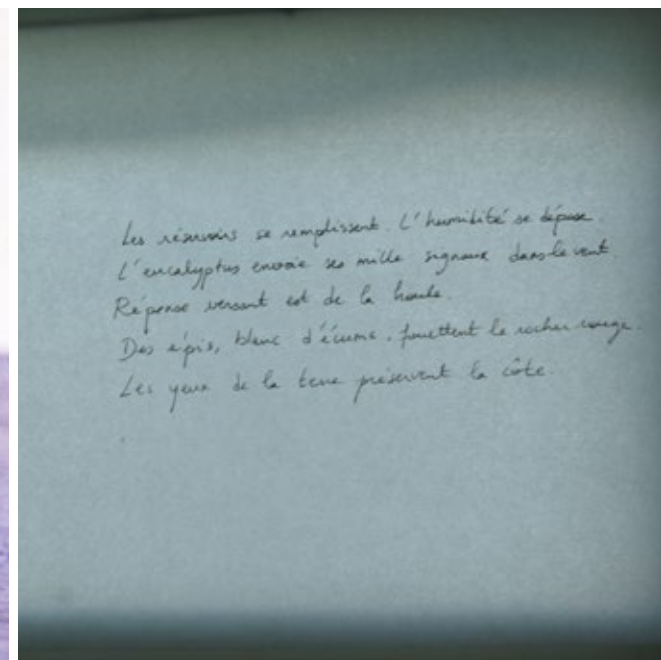 Les réservoirs se remplissent. L'humidité se dépose.
L'eucalyptus envoie ses mille signaux dans le vent.
Réponse versant est de la houle.
Des épis, blanc d'écume, fouettent le rocher rouge.
Les yeux de la terre préservent la côte.